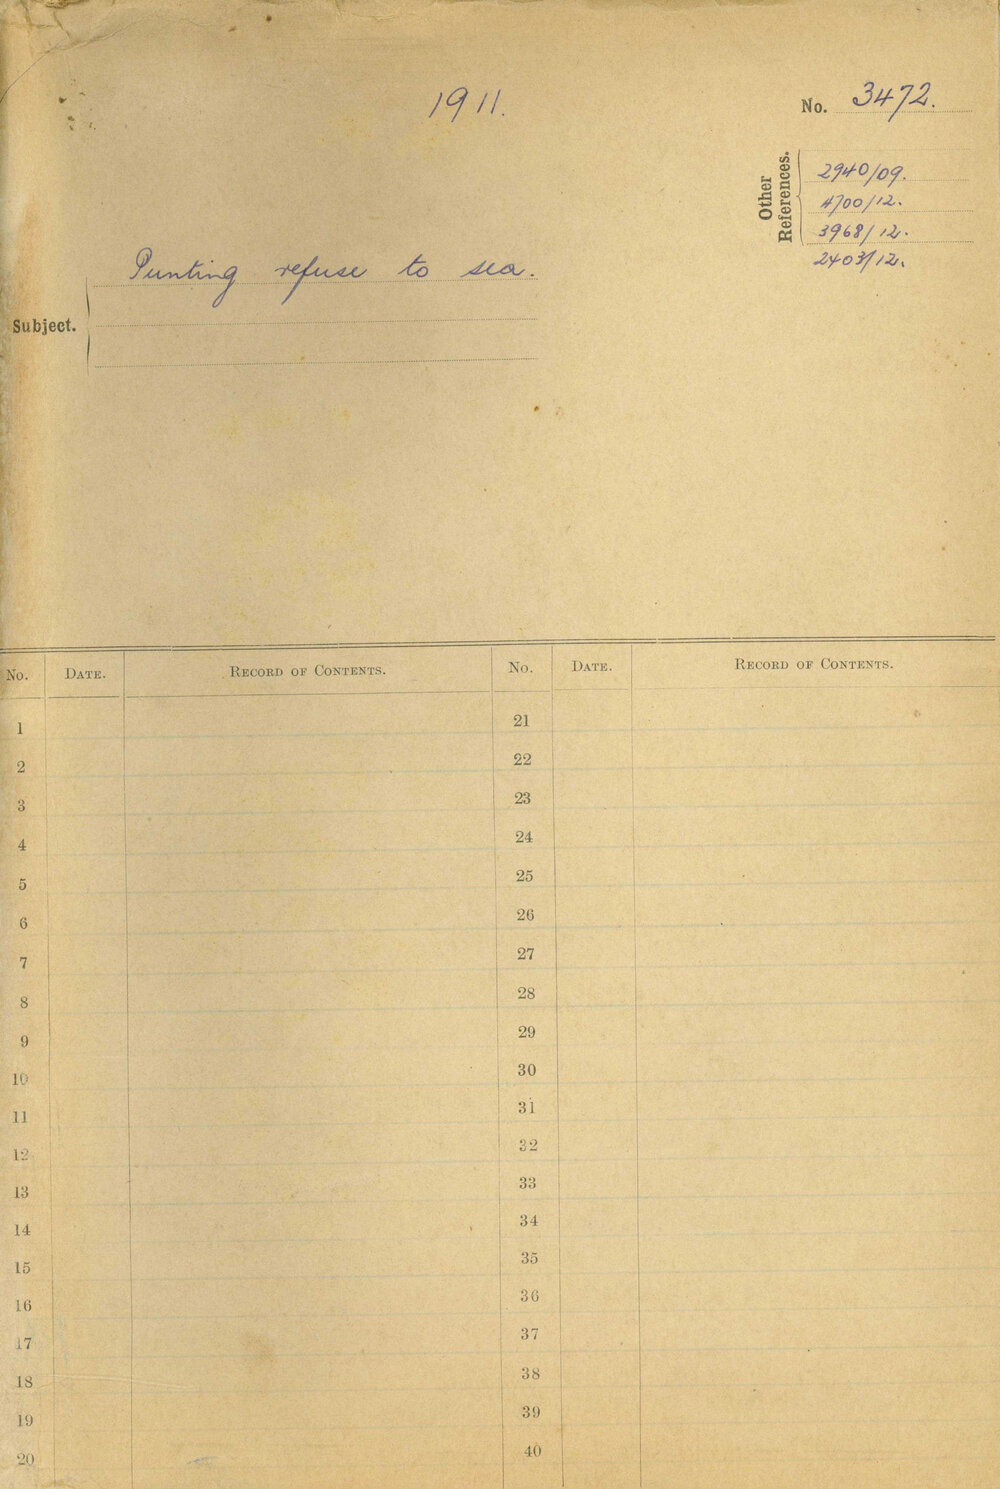 1911.
No. 3472.
Other References.
2940/09.
4700/12.
3968/12.
2403/12.
Subject.
Punting refuse to sea.
No. DATE. RECORD OF CONTENTS. No. DATE. RECORD OF CONTENTS.
1 21
2 22
3 23
4 24
5 25
6 26
7 27
8 28
9 29
10 30
11 31
12 32
13 33
14 34
15 35
16 36
17 37
18 38
19 39
20 40